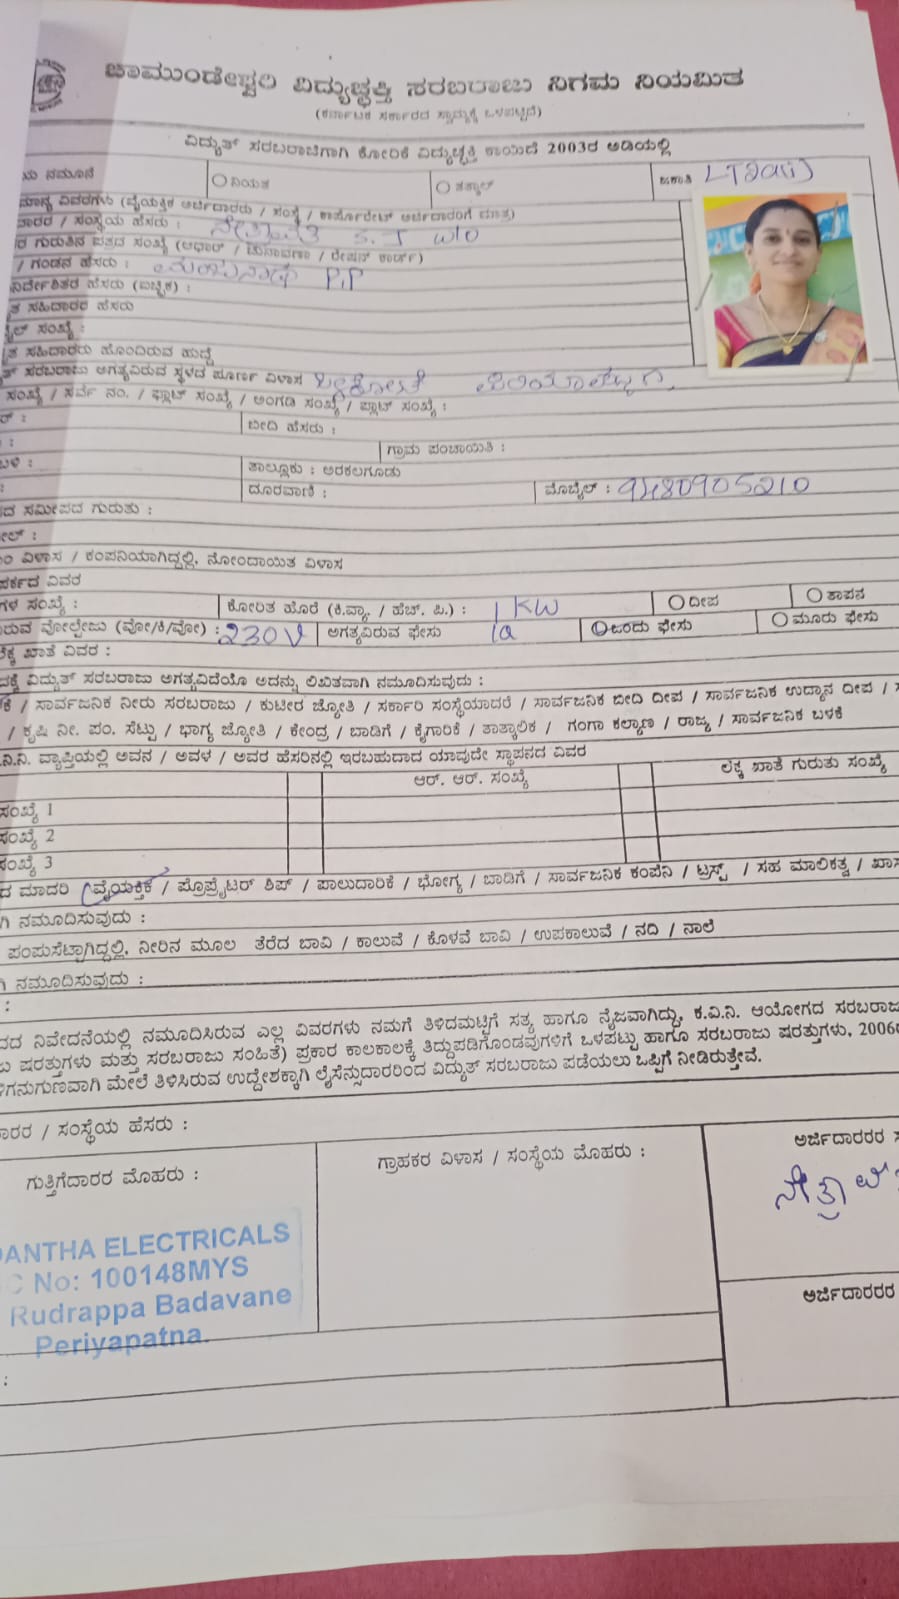 ಚಾಮುಂಡೇಶ್ವರಿ ವಿದ್ಯುಚ್ಛಕ್ತಿ ಸರಬರಾಜು ನಿಗಮ ನಿಯಮಿತ
(ಕರ್ನಾಟಕ ಸರ್ಕಾರದ ಸ್ವಾಮ್ಯಕ್ಕೆ ಒಳಪಟ್ಟಿದೆ)
ವಿದ್ಯುತ್ ಸರಬರಾಜಿಗಾಗಿ ಕೋರಿಕೆ ವಿದ್ಯುಚ್ಛಕ್ತಿ ಕಾಯಿದೆ 2003ರ ಅಡಿಯಲ್ಲಿ
ಯ ನಮೂನೆ ನಿಯತ ತತ್ಕಾಲ್ ಜಕಾತಿ
ಮಾನ್ಯ ವಿವರಗಳು (ವೈಯಕ್ತಿಕ ಅರ್ಜಿದಾರರು / ಸಂಸ್ಥೆ / ಕಾರ್ಪೋರೇಟ್ ಅರ್ಜಿದಾರರಿಗೆ ಮಾತ್ರ)
ದಾರರ / ಸಂಸ್ಥೆಯ ಹೆಸರು : S. J W/O
ರ ಗುರುತಿನ ಪತ್ರದ ಸಂಖ್ಯೆ (ಆಧಾರ್ / ಚುನಾವಣಾ / ರೇಷನ್ ಕಾರ್ಡ್)
/ ಗಂಡನ ಹೆಸರು : P.P
ನಿರ್ದೇಶಿತರ ಹೆಸರು (ಐಚ್ಛಿಕ) :
ತ ಸಹಿದಾರರ ಹೆಸರು
ೈಲ್ ಸಂಖ್ಯೆ :
ತ ಸಹಿದಾರರು ಹೊಂದಿರುವ ಹುದ್ದೆ
ತ್ ಸರಬರಾಜು ಅಗತ್ಯವಿರುವ ಸ್ಥಳದ ಪೂರ್ಣ ವಿಳಾಸ
ಸಂಖ್ಯೆ / ಸರ್ವೆ ನಂ. / ಫ್ಲಾಟ್ ಸಂಖ್ಯೆ / ಅಂಗಡಿ ಸಂಖ್ಯೆ / ಪ್ಲಾಟ್ ಸಂಖ್ಯೆ :
ರ್ : ಬೀದಿ ಹೆಸರು :
: ಗ್ರಾಮ ಪಂಚಾಯಿತಿ :
ಬಳಿ : ತಾಲ್ಲೂಕು : ಅರಕಲಗೂಡು
: ದೂರವಾಣಿ : ಮೊಬೈಲ್ : 9480905210
ದ ಸಮೀಪದ ಗುರುತು :
ೇಲ್ :
ಂ ವಿಳಾಸ / ಕಂಪನಿಯಾಗಿದ್ದಲ್ಲಿ, ನೋಂದಾಯಿತ ವಿಳಾಸ
ಪರ್ಕದ ವಿವರ
ಗಳ ಸಂಖ್ಯೆ : ಕೋರಿತ ಹೊರೆ (ಕಿ.ವ್ಯಾ. / ಹೆಚ್. ಪಿ.) : 1 KW ದೀಪ ತಾಪನ
ಿರುವ ವೋಲ್ಟೇಜು (ವೋ/ಕಿ/ವೋ) : 230 V ಅಗತ್ಯವಿರುವ ಫೇಸು ಒಂದು ಫೇಸು ಮೂರು ಫೇಸು
ಲೆಕ್ಕ ಖಾತೆ ವಿವರ :
ದಕ್ಕೆ ವಿದ್ಯುತ್ ಸರಬರಾಜು ಅಗತ್ಯವಿದೆಯೊ ಅದನ್ನು ಲಿಖಿತವಾಗಿ ನಮೂದಿಸುವುದು :
ಕೆ / ಸಾರ್ವಜನಿಕ ನೀರು ಸರಬರಾಜು / ಕುಟೀರ ಜ್ಯೋತಿ / ಸರ್ಕಾರಿ ಸಂಸ್ಥೆಯಾದರೆ / ಸಾರ್ವಜನಿಕ ಬೀದಿ ದೀಪ / ಸಾರ್ವಜನಿಕ ಉದ್ಯಾನ ದೀಪ /
/ ಕೃಷಿ ನೀ. ಪಂ. ಸೆಟ್ಟು / ಭಾಗ್ಯ ಜ್ಯೋತಿ / ಕೇಂದ್ರ / ಬಾಡಿಗೆ / ಕೈಗಾರಿಕೆ / ತಾತ್ಕಾಲಿಕ / ಗಂಗಾ ಕಲ್ಯಾಣ / ರಾಜ್ಯ / ಸಾರ್ವಜನಿಕ ಬಳಕೆ
.ನಿ.ನಿ. ವ್ಯಾಪ್ತಿಯಲ್ಲಿ ಅವನ / ಅವಳ / ಅವರ ಹೆಸರಿನಲ್ಲಿ ಇರಬಹುದಾದ ಯಾವುದೇ ಸ್ಥಾಪನದ ವಿವರ
ಆರ್. ಆರ್. ಸಂಖ್ಯೆ ಲೆಕ್ಕ ಖಾತೆ ಗುರುತು ಸಂಖ್ಯೆ
ಸಂಖ್ಯೆ 1
ಸಂಖ್ಯೆ 2
ಸಂಖ್ಯೆ 3
ದ ಮಾದರಿ (ವೈಯಕ್ತಿಕ / ಪ್ರೊಪ್ರೈಟರ್ ಶಿಪ್ / ಪಾಲುದಾರಿಕೆ / ಭೋಗ್ಯ / ಬಾಡಿಗೆ / ಸಾರ್ವಜನಿಕ ಕಂಪೆನಿ / ಟ್ರಸ್ಟ್ / ಸಹ ಮಾಲಿಕತ್ವ / ಖಾಸ
ಗಿ ನಮೂದಿಸುವುದು :
ಪಂಪುಸೆಟ್ಟಾಗಿದ್ದಲ್ಲಿ, ನೀರಿನ ಮೂಲ ತೆರೆದ ಬಾವಿ / ಕಾಲುವೆ / ಕೊಳವೆ ಬಾವಿ / ಉಪಕಾಲುವೆ / ನದಿ / ನಾಲೆ
ಗಿ ನಮೂದಿಸುವುದು :
:
ದದ ನಿವೇದನೆಯಲ್ಲಿ ನಮೂದಿಸಿರುವ ಎಲ್ಲ ವಿವರಗಳು ನಮಗೆ ತಿಳಿದಮಟ್ಟಿಗೆ ಸತ್ಯ ಹಾಗೂ ನೈಜವಾಗಿದ್ದು, ಕ.ವಿ.ನಿ. ಆಯೋಗದ ಸರಬರಾಜ
ು ಷರತ್ತುಗಳು ಮತ್ತು ಸರಬರಾಜು ಸಂಹಿತೆ) ಪ್ರಕಾರ ಕಾಲಕಾಲಕ್ಕೆ ತಿದ್ದುಪಡಿಗೊಂಡವುಗಳಿಗೆ ಒಳಪಟ್ಟು ಹಾಗೂ ಸರಬರಾಜು ಷರತ್ತುಗಳು, 2006
ಗನುಗುಣವಾಗಿ ಮೇಲೆ ತಿಳಿಸಿರುವ ಉದ್ದೇಶಕ್ಕಾಗಿ ಲೈಸೆನ್ಸುದಾರರಿಂದ ವಿದ್ಯುತ್ ಸರಬರಾಜು ಪಡೆಯಲು ಒಪ್ಪಿಗೆ ನೀಡಿರುತ್ತೇವೆ.
ಾರರ / ಸಂಸ್ಥೆಯ ಹೆಸರು :
ಗುತ್ತಿಗೆದಾರರ ಮೊಹರು : ಗ್ರಾಹಕರ ವಿಳಾಸ / ಸಂಸ್ಥೆಯ ಮೊಹರು : ಅರ್ಜಿದಾರರ ಸ
ANTHA ELECTRICALS
C No: 100148MYS
Rudrappa Badavane
Periyapatna.
ಅರ್ಜಿದಾರರ
: